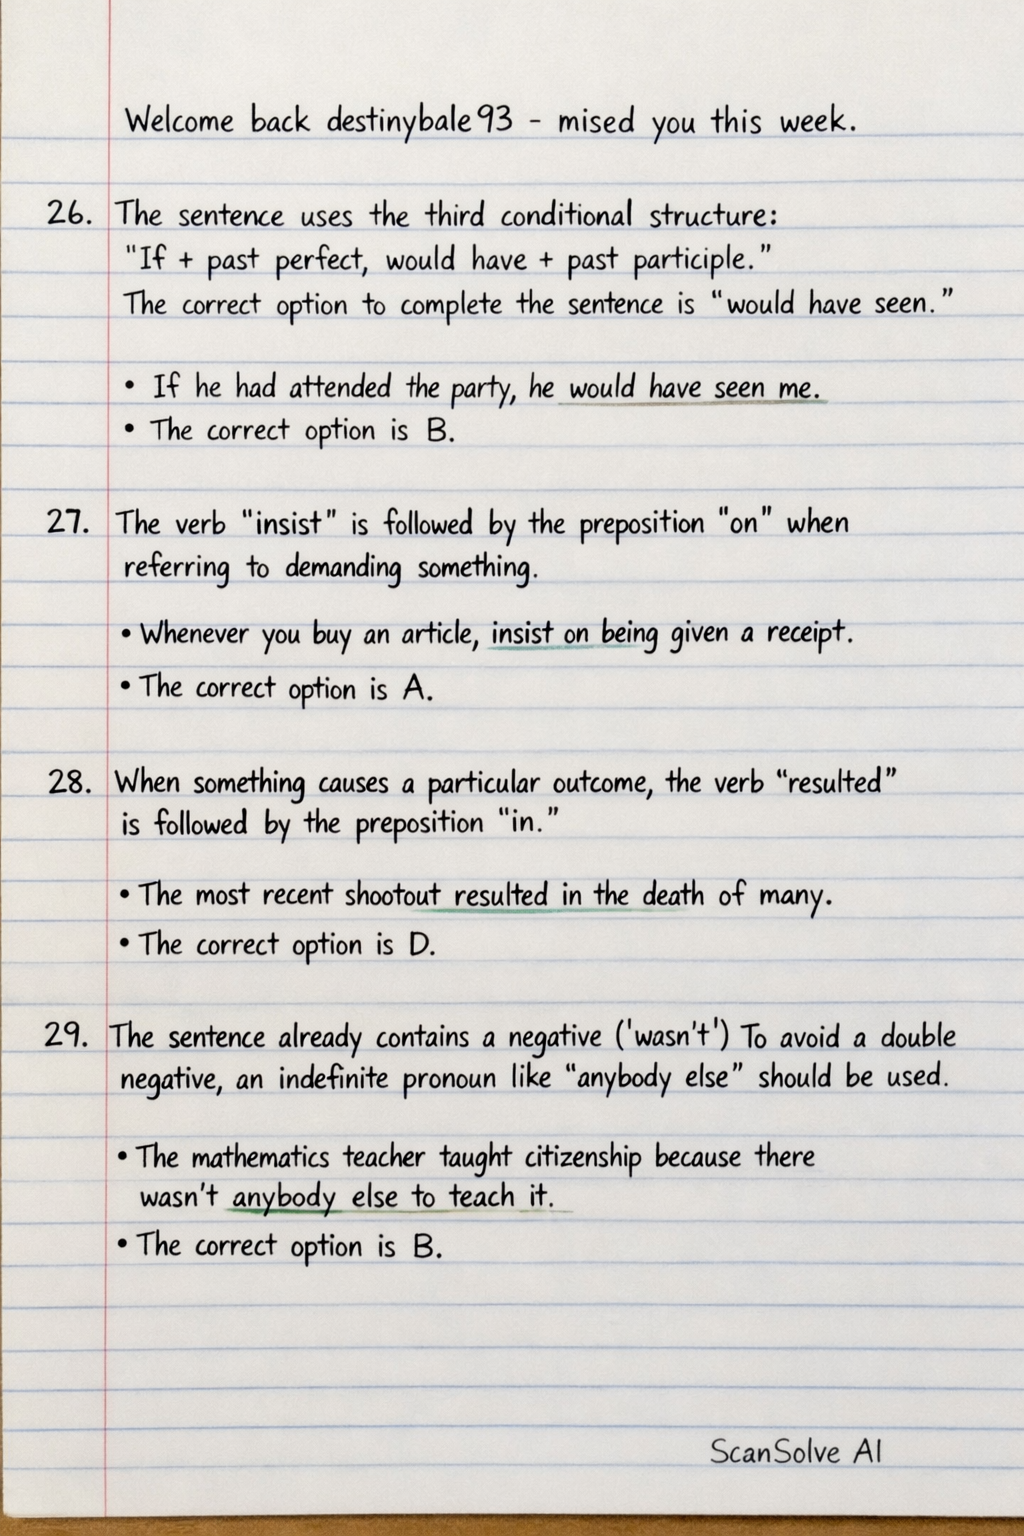 Welcome back destinybale93 - mised you this week.
26. The sentence uses the third conditional structure:
"If + past perfect, would have + past participle."
The correct option to complete the sentence is "would have seen."
• If he had attended the party, he would have seen me.
• The correct option is B.
27. The verb "insist" is followed by the preposition "on" when
referring to demanding something.
• Whenever you buy an article, insist on being given a receipt.
• The correct option is A.
28. When something causes a particular outcome, the verb "resulted"
is followed by the preposition "in."
• The most recent shootout resulted in the death of many.
• The correct option is D.
29. The sentence already contains a negative ('wasn't') To avoid a double
negative, an indefinite pronoun like "anybody else" should be used.
• The mathematics teacher taught citizenship because there
wasn't anybody else to teach it.
• The correct option is B.
ScanSolve AI